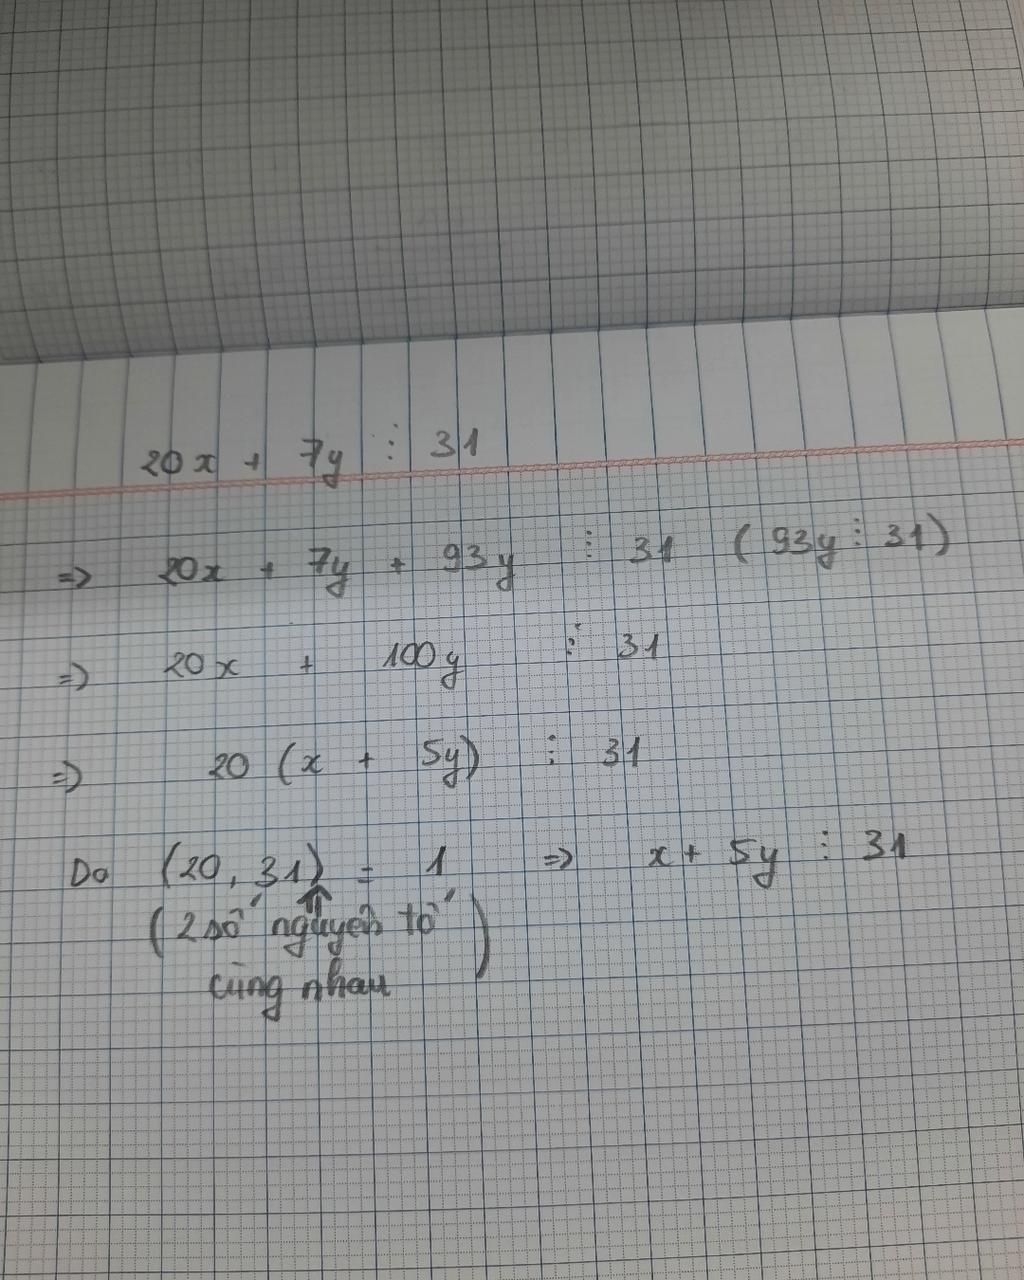 20x + 7y ⋮ 31
=> 20x + 7y + 93y ⋮ 31 (93y ⋮ 31)
=> 20x + 100y ⋮ 31
=> 20 (x + 5y) ⋮ 31
Do (20, 31) = 1 => x + 5y ⋮ 31
(2 số nguyên tố
cùng nhau)